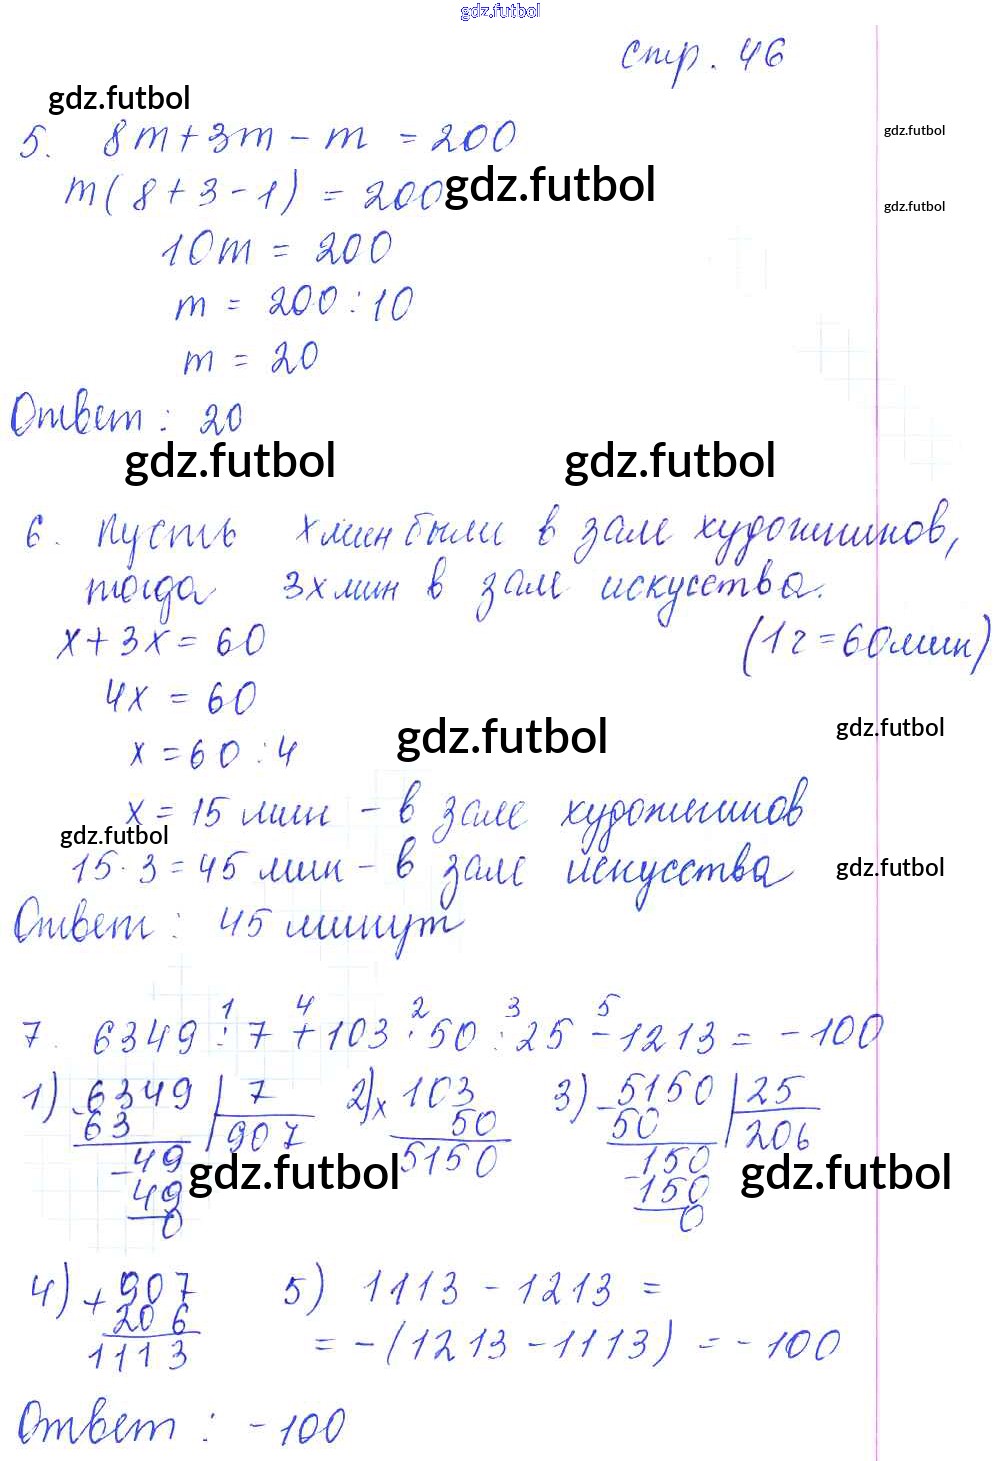 gdz.futbol
стр. 46
gdz.futbol
5. 8m + 3m - m = 200
gdz.futbol
m(8 + 3 - 1) = 200
gdz.futbol
gdz.futbol
10m = 200
m = 200 : 10
m = 20
Ответ: 20
gdz.futbol
gdz.futbol
6. Пусть x мин были в зале художников,
тогда 3x мин в зале искусства.
x + 3x = 60 (1 г = 60 мин)
4x = 60
gdz.futbol
gdz.futbol
x = 60 : 4
x = 15 мин - в зале художников
gdz.futbol
15 · 3 = 45 мин - в зале искусства
gdz.futbol
Ответ: 45 минут
1 4 2 3 5
7. 6349 : 7 + 103 · 50 : 25 - 1213 = -100
1) 6349 | 7 2) x 103 3) 5150 | 25
- 63 907 50 - 50 206
- 49 5150 150
gdz.futbol
gdz.futbol
49 - 150
0 0
4) + 907 5) 1113 - 1213 =
206
1113 = -(1213 - 1113) = -100
Ответ: -100